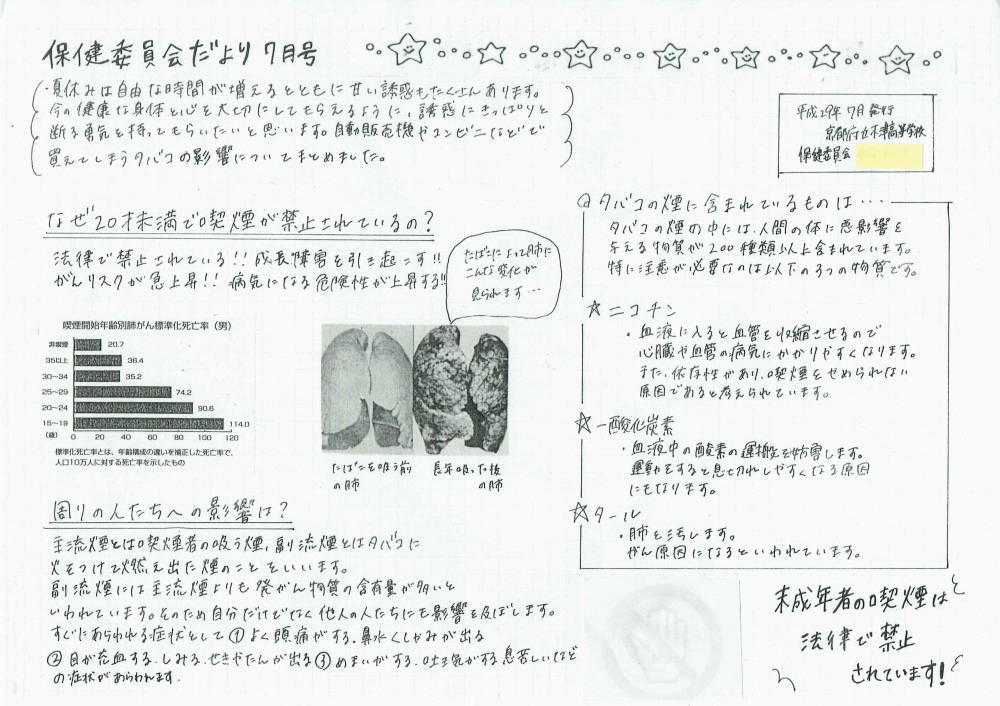 保健委員会だより 7月号
・夏休みは自由な時間が増えるとともに甘い誘惑もたくさんあります。
今の健康な身体と心を大切にしてもらえるように、誘惑にきっぱりと
断る勇気を持ってもらいたいと思います。自動販売機やコンビニなどで
買えてしまうタバコの影響についてまとめました。
平成29年7月発行
京都府立木津高等学校
保健委員会
なぜ20才未満で喫煙が禁止されているの?
法律で禁止されている!! 成長障害を引き起こす!!
がんリスクが急上昇!! 病気になる危険性が上昇する!!
たばこによって肺に
こんな変化が
見られます…
喫煙開始年齢別肺がん標準化死亡率(男)
非喫煙 20.7
35以上 36.4
30〜34 35.2
25〜29 74.2
20〜24 90.6
15〜19 114.0
(歳) 0 20 40 60 80 100 120 140
標準化死亡率とは、年齢構成の違いを補正した死亡率で、
人口10万人に対する死亡率を示したもの
たばこを吸う前
の肺
長年吸った後
の肺
周りの人たちへの影響は?
主流煙とは喫煙者の吸う煙、副流煙とはタバコに
火をつけて燃え出た煙のことをいいます。
副流煙には主流煙よりも発がん物質の含有量が多いと
いわれています。そのため自分だけでなく他人の人たちにも影響を及ぼします。
すぐにあらわれる症状として①よく頭痛がする、鼻水くしゃみが出る
②目が充血する、しみる、せきやたんが出る③めまいがする、吐き気がする息苦しいなど
の症状があらわれます。
タバコの煙に含まれているものは…
タバコの煙の中には、人間の体に悪影響を
与える物質が200種類以上含まれています。
特に注意が必要なのは以下の3つの物質です。
☆ニコチン
・血液に入ると血管を収縮させるので
心臓や血管の病気にかかりやすくなります。
また、依存性があり、喫煙をやめられない
原因であると考えられています。
☆一酸化炭素
・血液中の酸素の運搬を妨害します。
運動をすると息切れしやすくなる原因
にもなります。
☆タール
・肺を汚します。
がん原因になるといわれています。
未成年者の喫煙は
法律で禁止
されています!